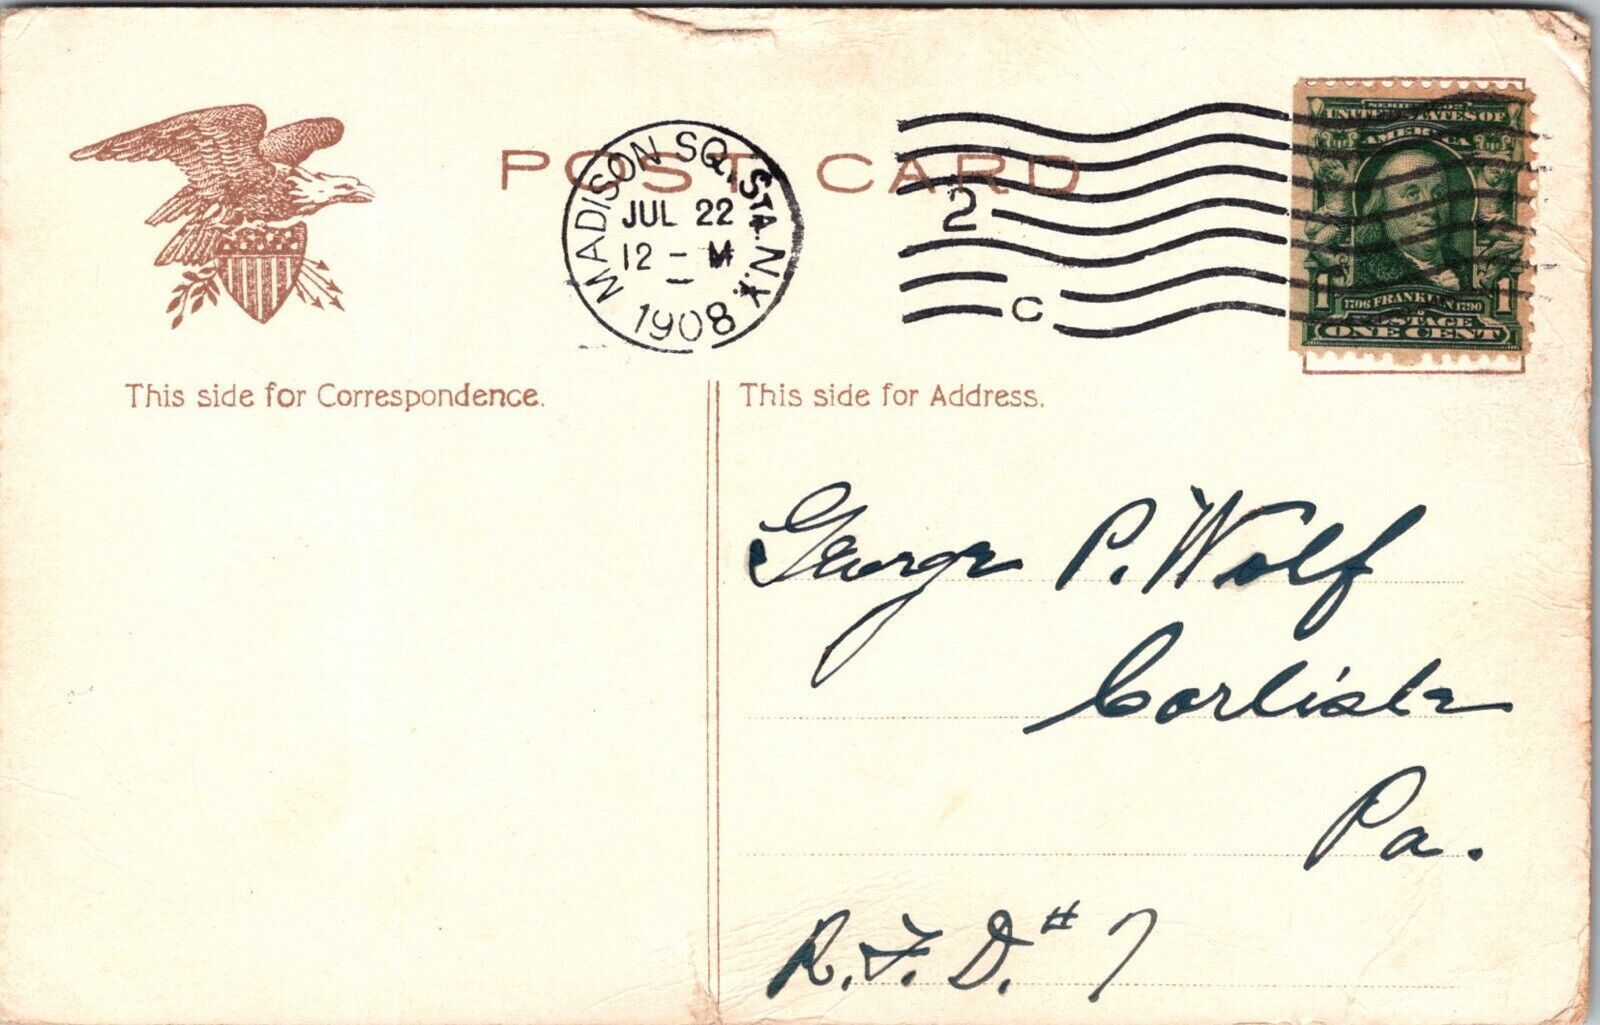 POST CARD
MADISON SQ. STA. N.Y.
JUL 22
12 - M
1908
2
C
SERIES 1902
UNITED STATES OF
AMERICA
1706 FRANKLIN 1790
1 1
POSTAGE
ONE CENT
This side for Correspondence.
This side for Address.
George P. Wolf
Carlisle
Pa.
R.F.D. # 7